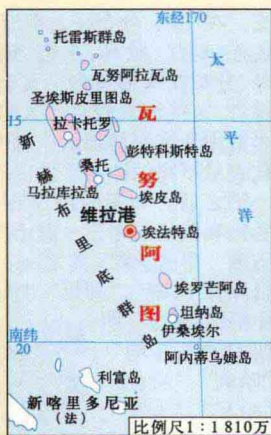 东经170
托雷斯群岛
太
瓦努阿拉瓦岛
圣埃斯皮里图岛
瓦
15
拉卡托罗
平
新
彭特科斯特岛
赫
桑托
努
马拉库拉岛
埃皮岛
布
维拉港
洋
里
埃法特岛
阿
底
埃罗芒阿岛
群
图
坦纳岛
岛
伊桑埃尔
南纬
20
阿内蒂乌姆岛
利富岛
新喀里多尼亚
(法)
比例尺1:1 810万